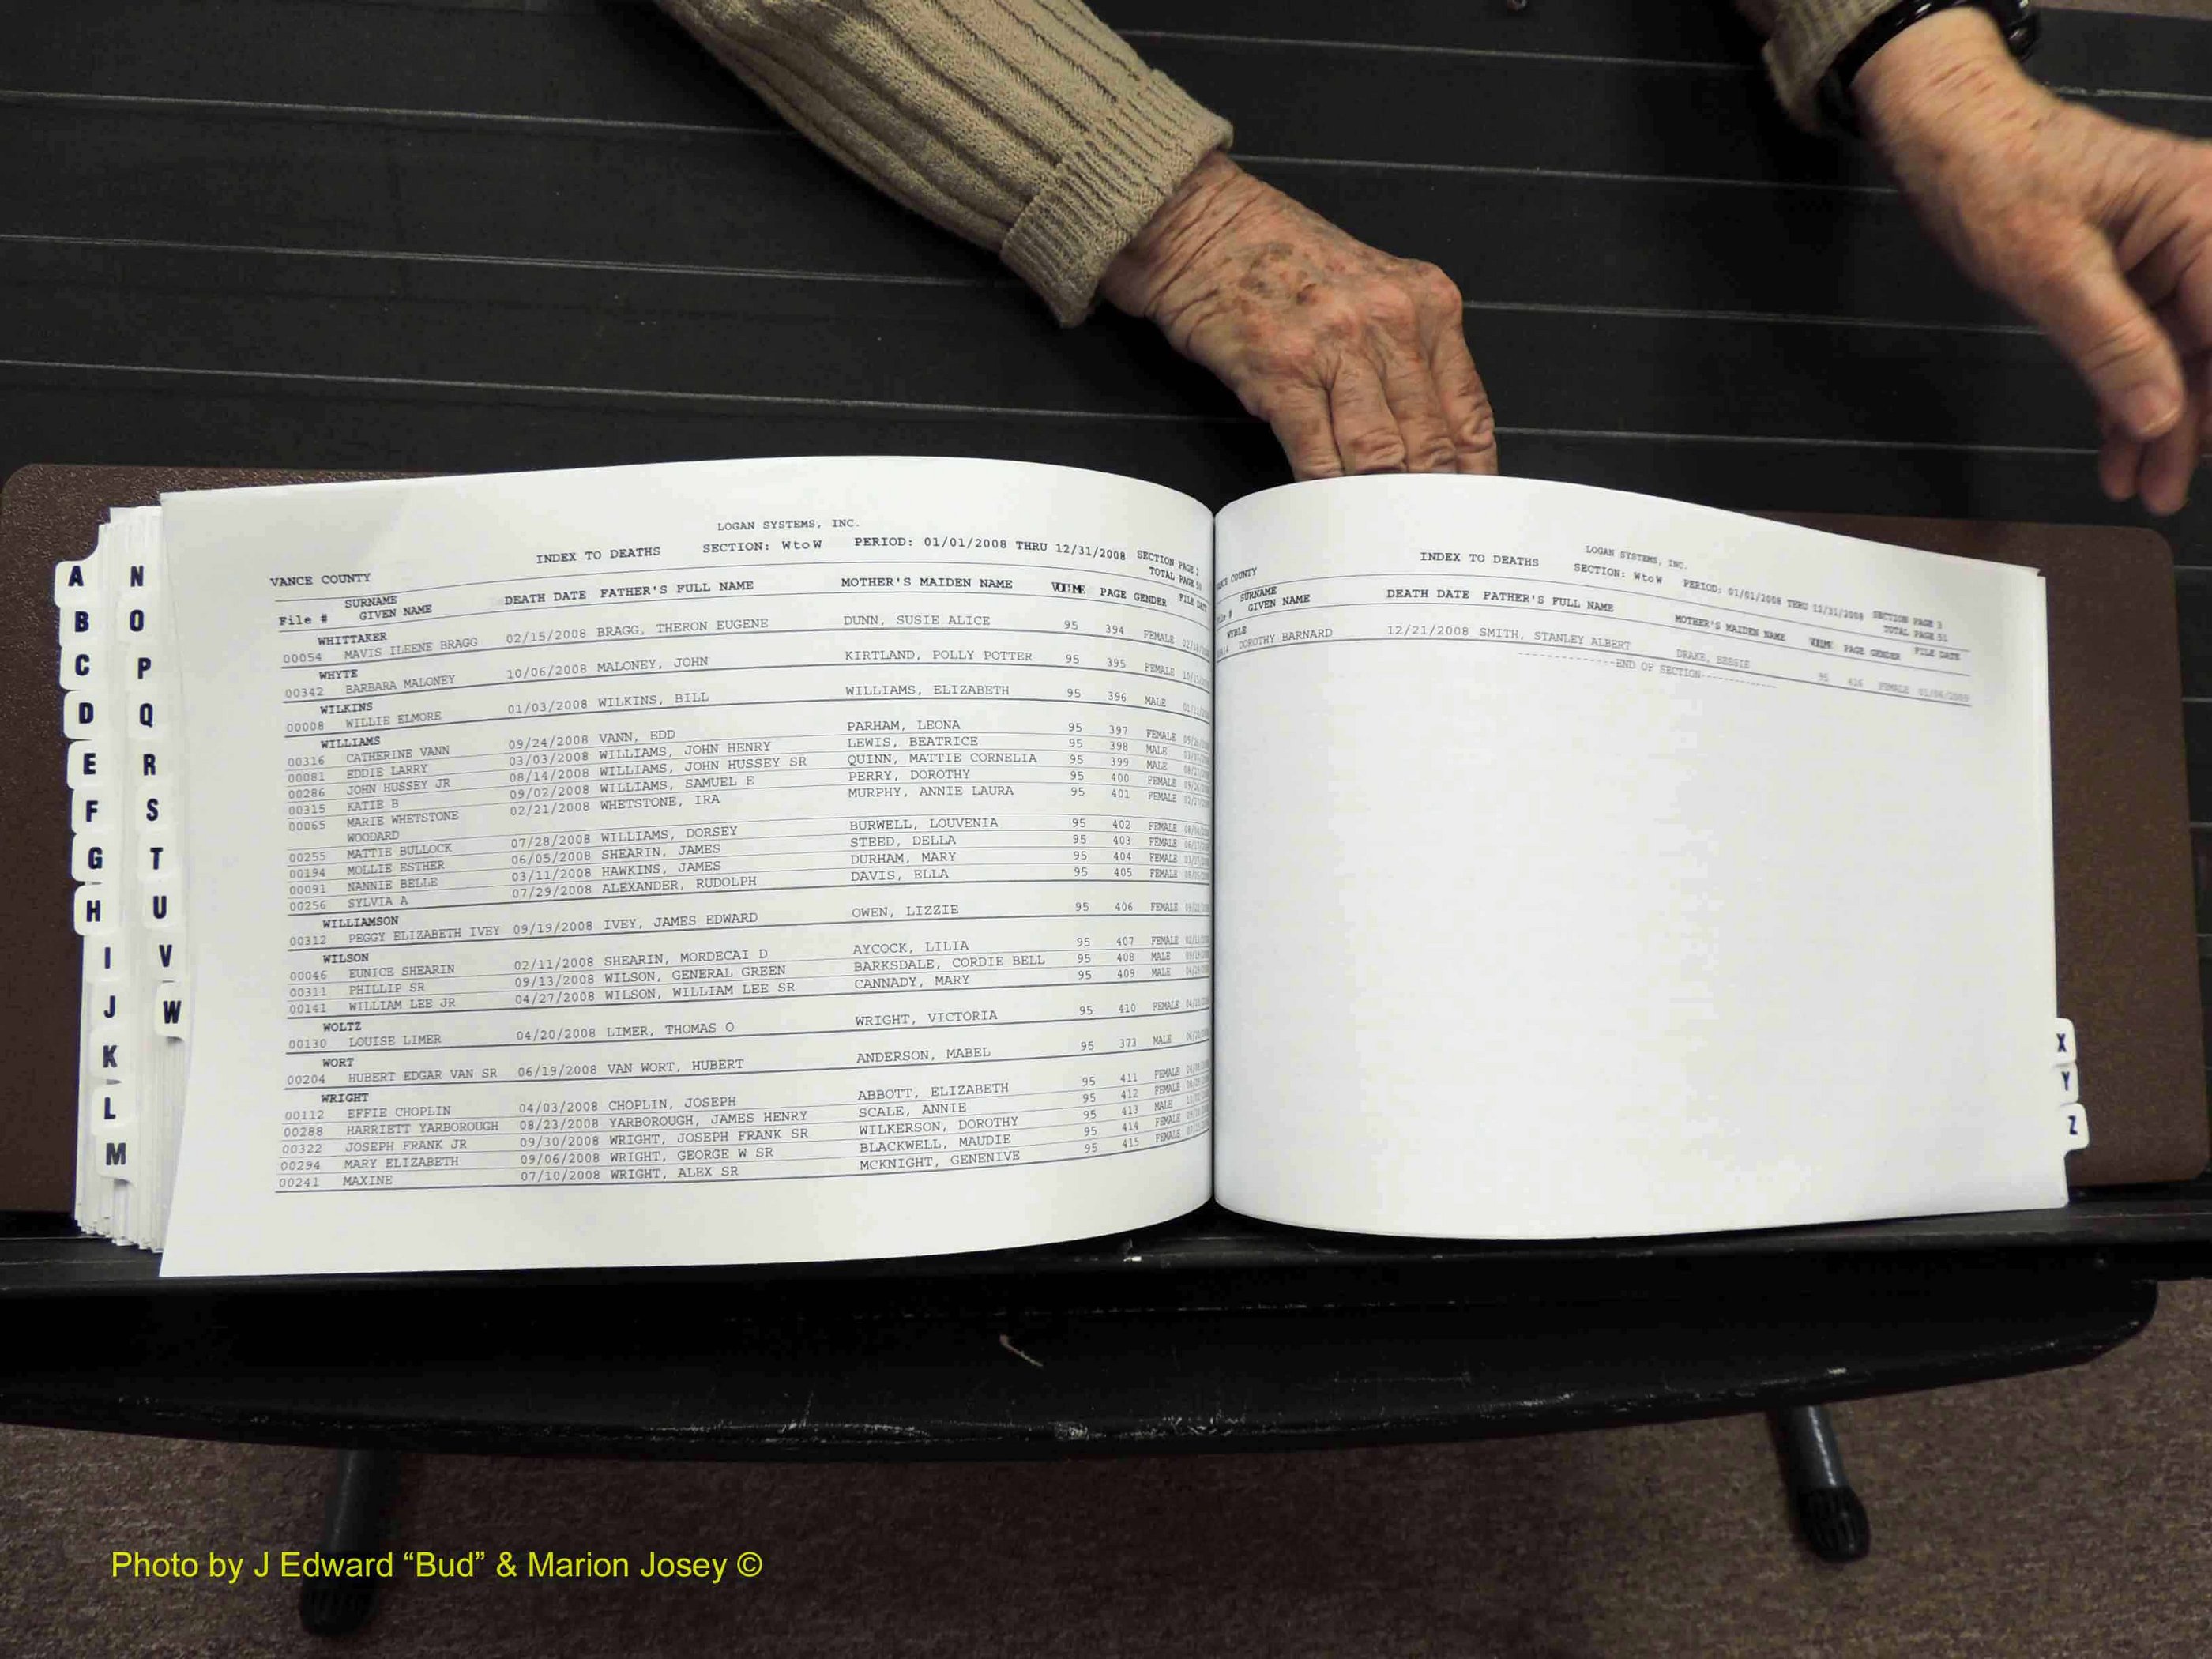 LOGAN SYSTEMS, INC.
INDEX TO DEATHS SECTION: W to W PERIOD: 01/01/2008 THRU 12/31/2008 SECTION PAGE
VANCE COUNTY TOTAL PAGE
File # SURNAME GIVEN NAME DEATH DATE FATHER'S FULL NAME MOTHER'S MAIDEN NAME VOLUME PAGE GENDER FILE DATE
WHITTAKER
00054 MAVIS ILEENE BRAGG 02/15/2008 BRAGG, THERON EUGENE DUNN, SUSIE ALICE 95 394 FEMALE
WHYTE
00342 BARBARA MALONEY 10/06/2008 MALONEY, JOHN KIRTLAND, POLLY POTTER 95 395 FEMALE
WILKINS
00008 WILLIE ELMORE 01/03/2008 WILKINS, BILL WILLIAMS, ELIZABETH 95 396 MALE
WILLIAMS
00316 CATHERINE VANN 09/24/2008 VANN, EDD PARHAM, LEONA 95 397 FEMALE
00081 EDDIE LARRY 03/03/2008 WILLIAMS, JOHN HENRY LEWIS, BEATRICE 95 398 MALE
00286 JOHN HUSSEY JR 08/14/2008 WILLIAMS, JOHN HUSSEY SR QUINN, MATTIE CORNELIA 95 399 MALE
00315 KATIE B 09/02/2008 WILLIAMS, SAMUEL E PERRY, DOROTHY 95 400 FEMALE
00065 MARIE WHETSTONE 02/21/2008 WHETSTONE, IRA MURPHY, ANNIE LAURA 95 401 FEMALE
WOODARD
00255 MATTIE BULLOCK 07/28/2008 WILLIAMS, DORSEY BURWELL, LOUVENIA 95 402 FEMALE
00194 MOLLIE ESTHER 06/05/2008 SHEARIN, JAMES STEED, DELLA 95 403 FEMALE
00091 NANNIE BELLE 03/11/2008 HAWKINS, JAMES DURHAM, MARY 95 404 FEMALE
00256 SYLVIA A 07/29/2008 ALEXANDER, RUDOLPH DAVIS, ELLA 95 405 FEMALE
WILLIAMSON
00312 PEGGY ELIZABETH IVEY 09/19/2008 IVEY, JAMES EDWARD OWEN, LIZZIE 95 406 FEMALE
WILSON
00046 EUNICE SHEARIN 02/11/2008 SHEARIN, MORDECAI D AYCOCK, LILIA 95 407 FEMALE
00311 PHILLIP SR 09/13/2008 WILSON, GENERAL GREEN BARKSDALE, CORDIE BELL 95 408 MALE
00141 WILLIAM LEE JR 04/27/2008 WILSON, WILLIAM LEE SR CANNADY, MARY 95 409 MALE
WOLTZ
00130 LOUISE LIMER 04/20/2008 LIMER, THOMAS O WRIGHT, VICTORIA 95 410 FEMALE
WORT
00204 HUBERT EDGAR VAN SR 06/19/2008 VAN WORT, HUBERT ANDERSON, MABEL 95 373 MALE
WRIGHT
00112 EFFIE CHOPLIN 04/03/2008 CHOPLIN, JOSEPH ABBOTT, ELIZABETH 95 411 FEMALE
00288 HARRIETT YARBOROUGH 08/23/2008 YARBOROUGH, JAMES HENRY SCALE, ANNIE 95 412 FEMALE
00322 JOSEPH FRANK JR 09/30/2008 WRIGHT, JOSEPH FRANK SR WILKERSON, DOROTHY 95 413 MALE
00294 MARY ELIZABETH 09/06/2008 WRIGHT, GEORGE W SR BLACKWELL, MAUDIE 95 414 FEMALE
00241 MAXINE 07/10/2008 WRIGHT, ALEX SR MCKNIGHT, GENENIVE 95 415 FEMALE
LOGAN SYSTEMS, INC.
INDEX TO DEATHS SECTION: W to W PERIOD: 01/01/2008 THRU 12/31/2008 SECTION PAGE 3
COUNTY TOTAL PAGE 51
SURNAME GIVEN NAME DEATH DATE FATHER'S FULL NAME MOTHER'S MAIDEN NAME VOLUME PAGE GENDER FILE DATE
DOROTHY BARNARD 12/21/2008 SMITH, STANLEY ALBERT DRAKE, BESSIE 95 416 FEMALE 01/06/2009
---------------END OF SECTION---------------
A
B
C
D
E
F
G
H
I
J
K
L
M
N
O
P
Q
R
S
T
U
V
W
X
Y
Z
Photo by J Edward “Bud” & Marion Josey ©